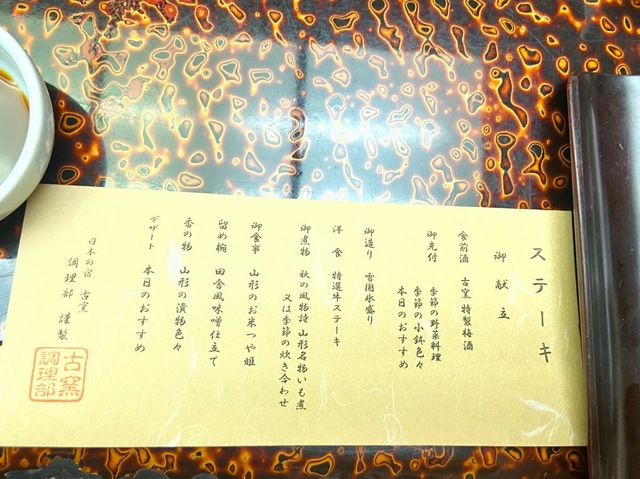 ステーキ
御献立
食前酒 古窯 特製梅酒
御先付 季節の野菜料理
季節の小鉢色々
本日のおすすめ
御造り 雪国氷盛り
洋食 特選牛ステーキ
御煮物 秋の風物詩 山形名物いも煮
又は季節の炊き合わせ
御食事 山形のお米つや姫
留め椀 田舎風味噌仕立て
香の物 山形の漬物色々
デザート 本日のおすすめ
日本の宿 古窯
調理部 謹製
古窯
調理部